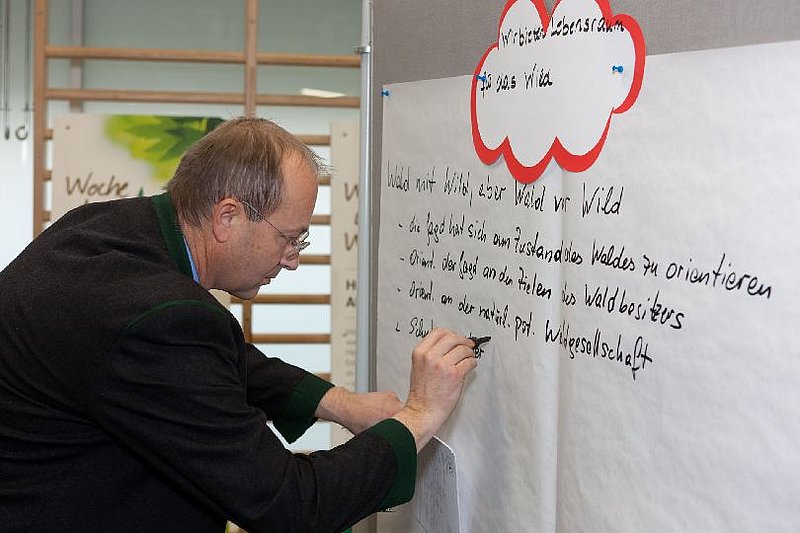 Wir bieten Lebensraum
für das Wild
Wald mit Wild, aber Wald vor Wild
- die Jagd hat sich am Zustand des Waldes zu orientieren
- Orient. der Jagd an den Zielen des Waldbesitzers
- Orient. an der natürl. pot. Waldgesellschaft
Woche
W
W